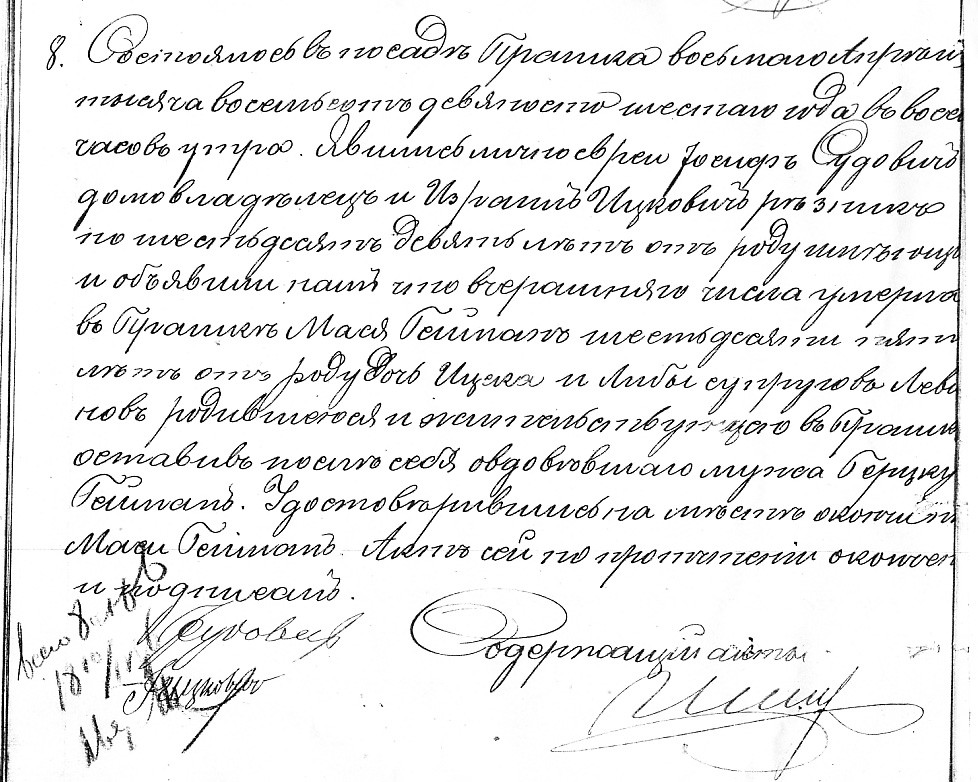 8. Состоялось въ посадѣ Прашка восьмаго Апрѣля
тысяча восемьсотъ девяносто шестаго года въ восе
часовъ утра. Явились лично евреи Іосифъ Судовичъ
домовладѣлецъ и Израиль Ицковичъ рѣзникъ
по шестьдесятъ девять лѣтъ отъ роду имѣющі
и объявили намъ что вчерашняго числа умерла
въ Прашкѣ Мася Гейманъ шестьдесяти пяти
лѣтъ отъ роду дочь Ицека и Либы супруговъ Леви
новъ родившеюся и жительствующею въ Прашкѣ
оставивъ послѣ себя овдовѣвшаго мужа Герцку
Гейманъ. Удостовѣрившись на мѣстѣ о кончинѣ
Маси Гейманъ. Актъ сей по прочтеніи окончен
и подписанъ.
Содержащій акты
всего 8